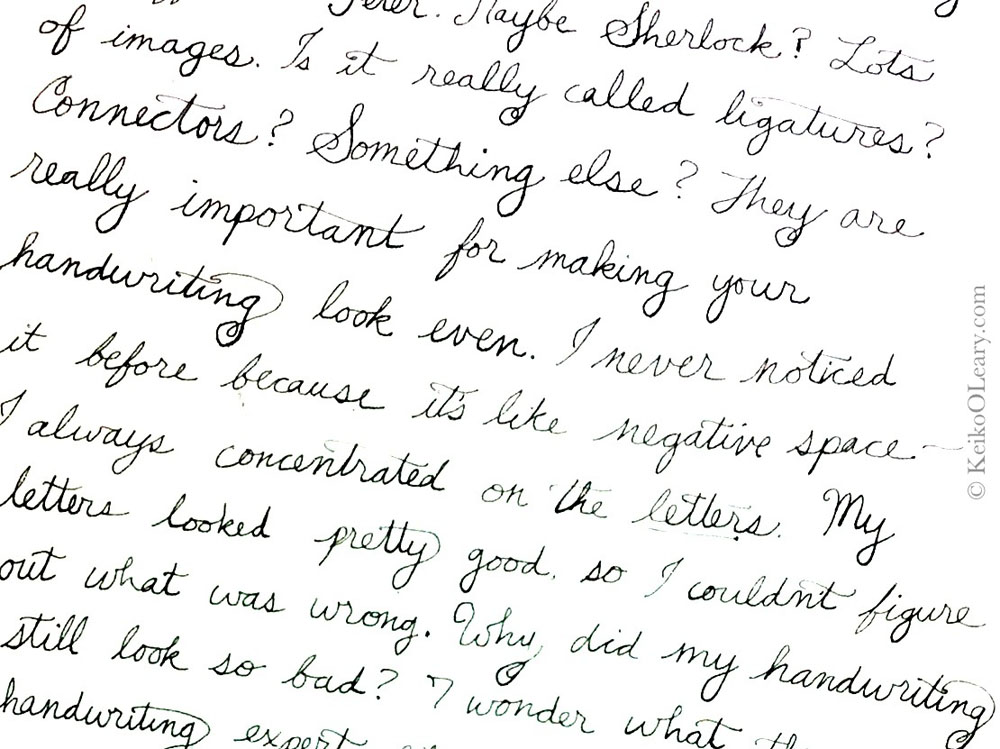 Maybe Sherlock? Lots
of images. Is it really called ligatures?
Connectors? Something else? They are
really important for making your
handwriting look even. I never noticed
it before because it's like negative space—
I always concentrated on the letters. My
letters looked pretty good, so I couldn't figure
out what was wrong. Why did my handwriting
still look so bad? I wonder what
handwriting expert
© KeikoOLeary.com